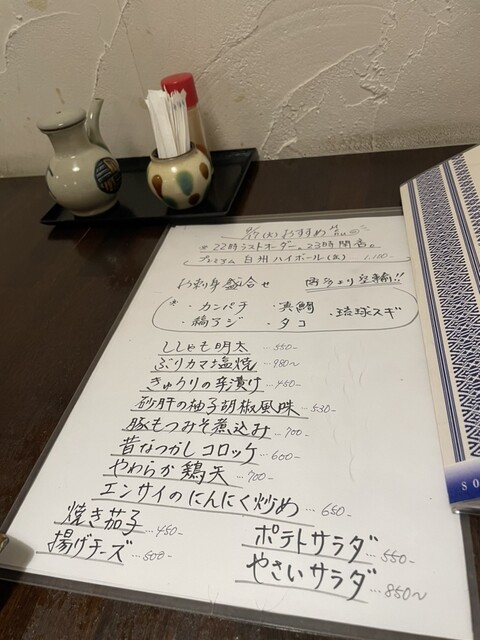 9/17(火) おすすめ品
※22時ラストオーダー。23時閉店。
プレミアム 白州ハイボール(炭) … 1,100-
お刺身盛合せ
空輸!!
・カンパチ ・真鯛 ・琉球スギ
・縞アジ ・タコ
ししゃも明太 … 550-
ぶりカマ塩焼 … 980~
きゅうりの辛漬け … 450-
砂肝の柚子胡椒風味 … 530-
豚もつみそ煮込み … 700-
昔なつかしコロッケ … 600-
やわらか鶏天 … 700-
エンサイのにんにく炒め … 650-
焼き茄子 … 450-
揚げチーズ … 500-
ポテトサラダ … 550-
やさいサラダ … 850~
SO